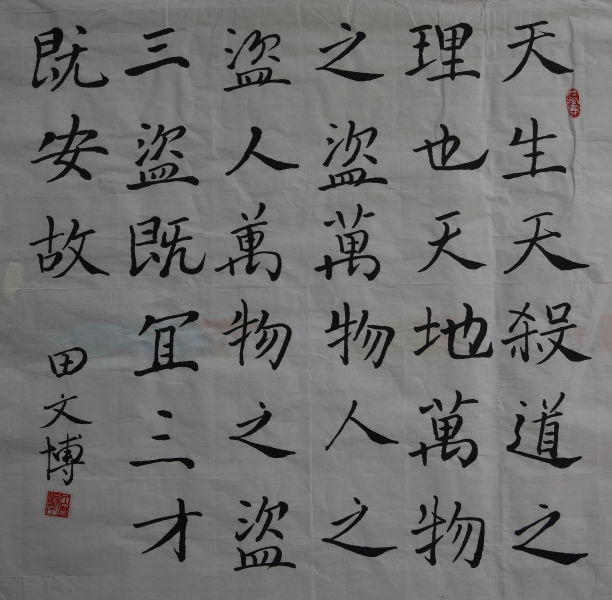 天生天殺道之
理也天地萬物
之盜萬物人之
盜人萬物之盜
三盜既宜三才
既安故
田文博